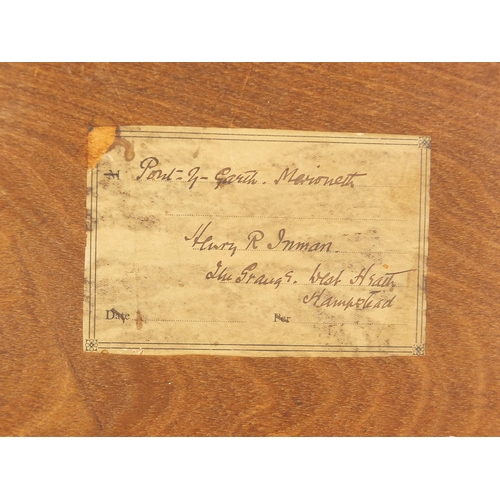 1 Pont-y-Garth. Merioneth
Henry R Inman.
The Grange. West Heath
Hampstead
Date Per